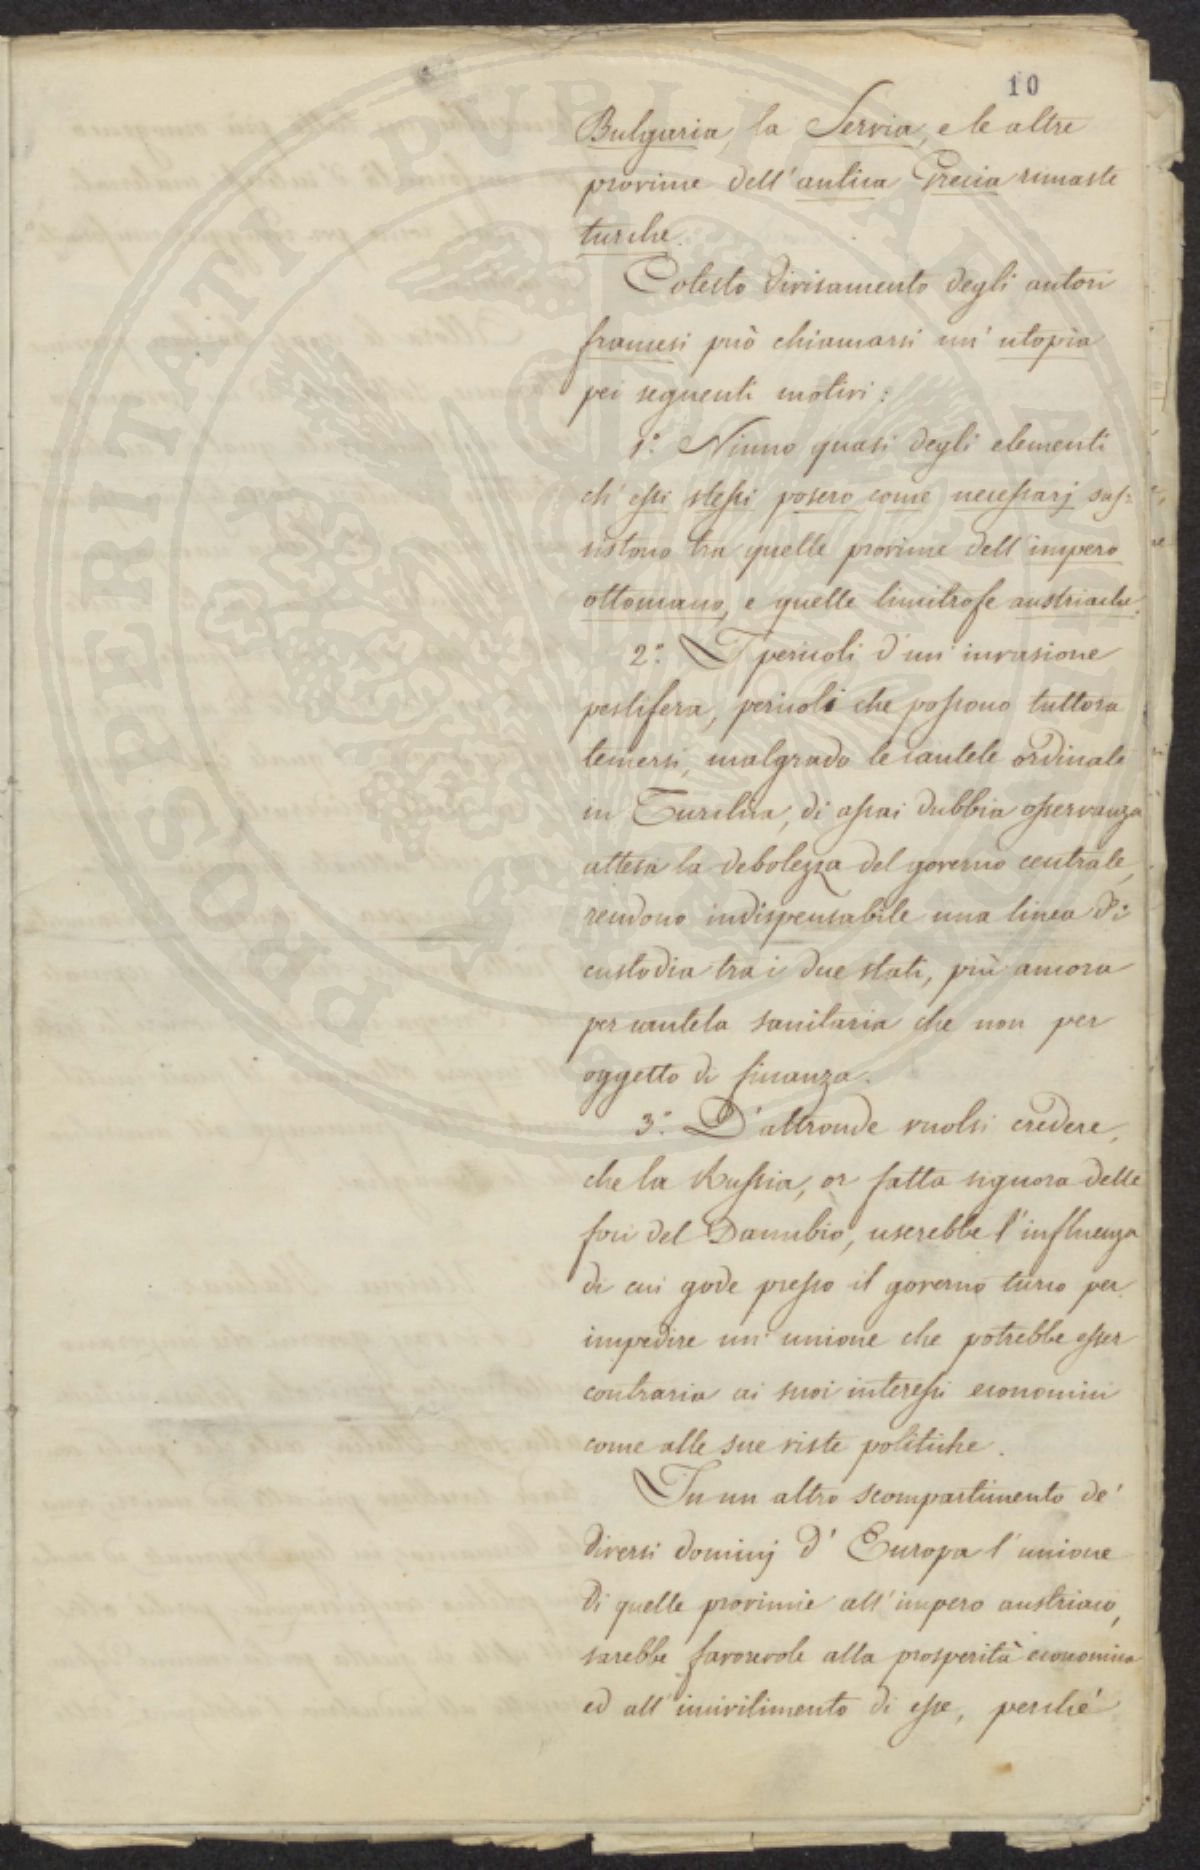 10
Bulgaria, la Servia, e le altre
provincie dell'antica Grecia rimaste
turche.
Cotesto divisamento degli autori
francesi può chiamarsi un'utopia
pei seguenti motivi:
1.° Niuno quasi degli elementi
ch'essi stessi posero come necessarj sus=
sistono tra quelle provincie dell'impero
ottomano, e quelle limitrofe austriache.
2.° I pericoli d'un'invasione
pestifera, pericoli che possono tuttora
temersi, malgrado le cautele ordinate
in Turchia, di assai dubbia osservanza
attesa la debolezza del governo centrale,
rendono indispensabile una linea di
custodia tra i due stati, più ancora
per cautela sanitaria che non per
oggetto di finanza.
3.° D'altronde vuolsi credere,
che la Russia, or fatta signora delle
foci del Danubio, userebbe l'influenza
di cui gode presso il governo turco per
impedire un'unione che potrebbe esser
contraria ai suoi interessi economici
come alle sue viste politiche.
In un altro scompartimento de'
diversi dominj d'Europa l'unione
di quelle provincie all'impero austriaco,
sarebbe favorevole alla prosperità economica
ed all'incivilimento di esse, perchè
PROSPERITATI PUBLICAE